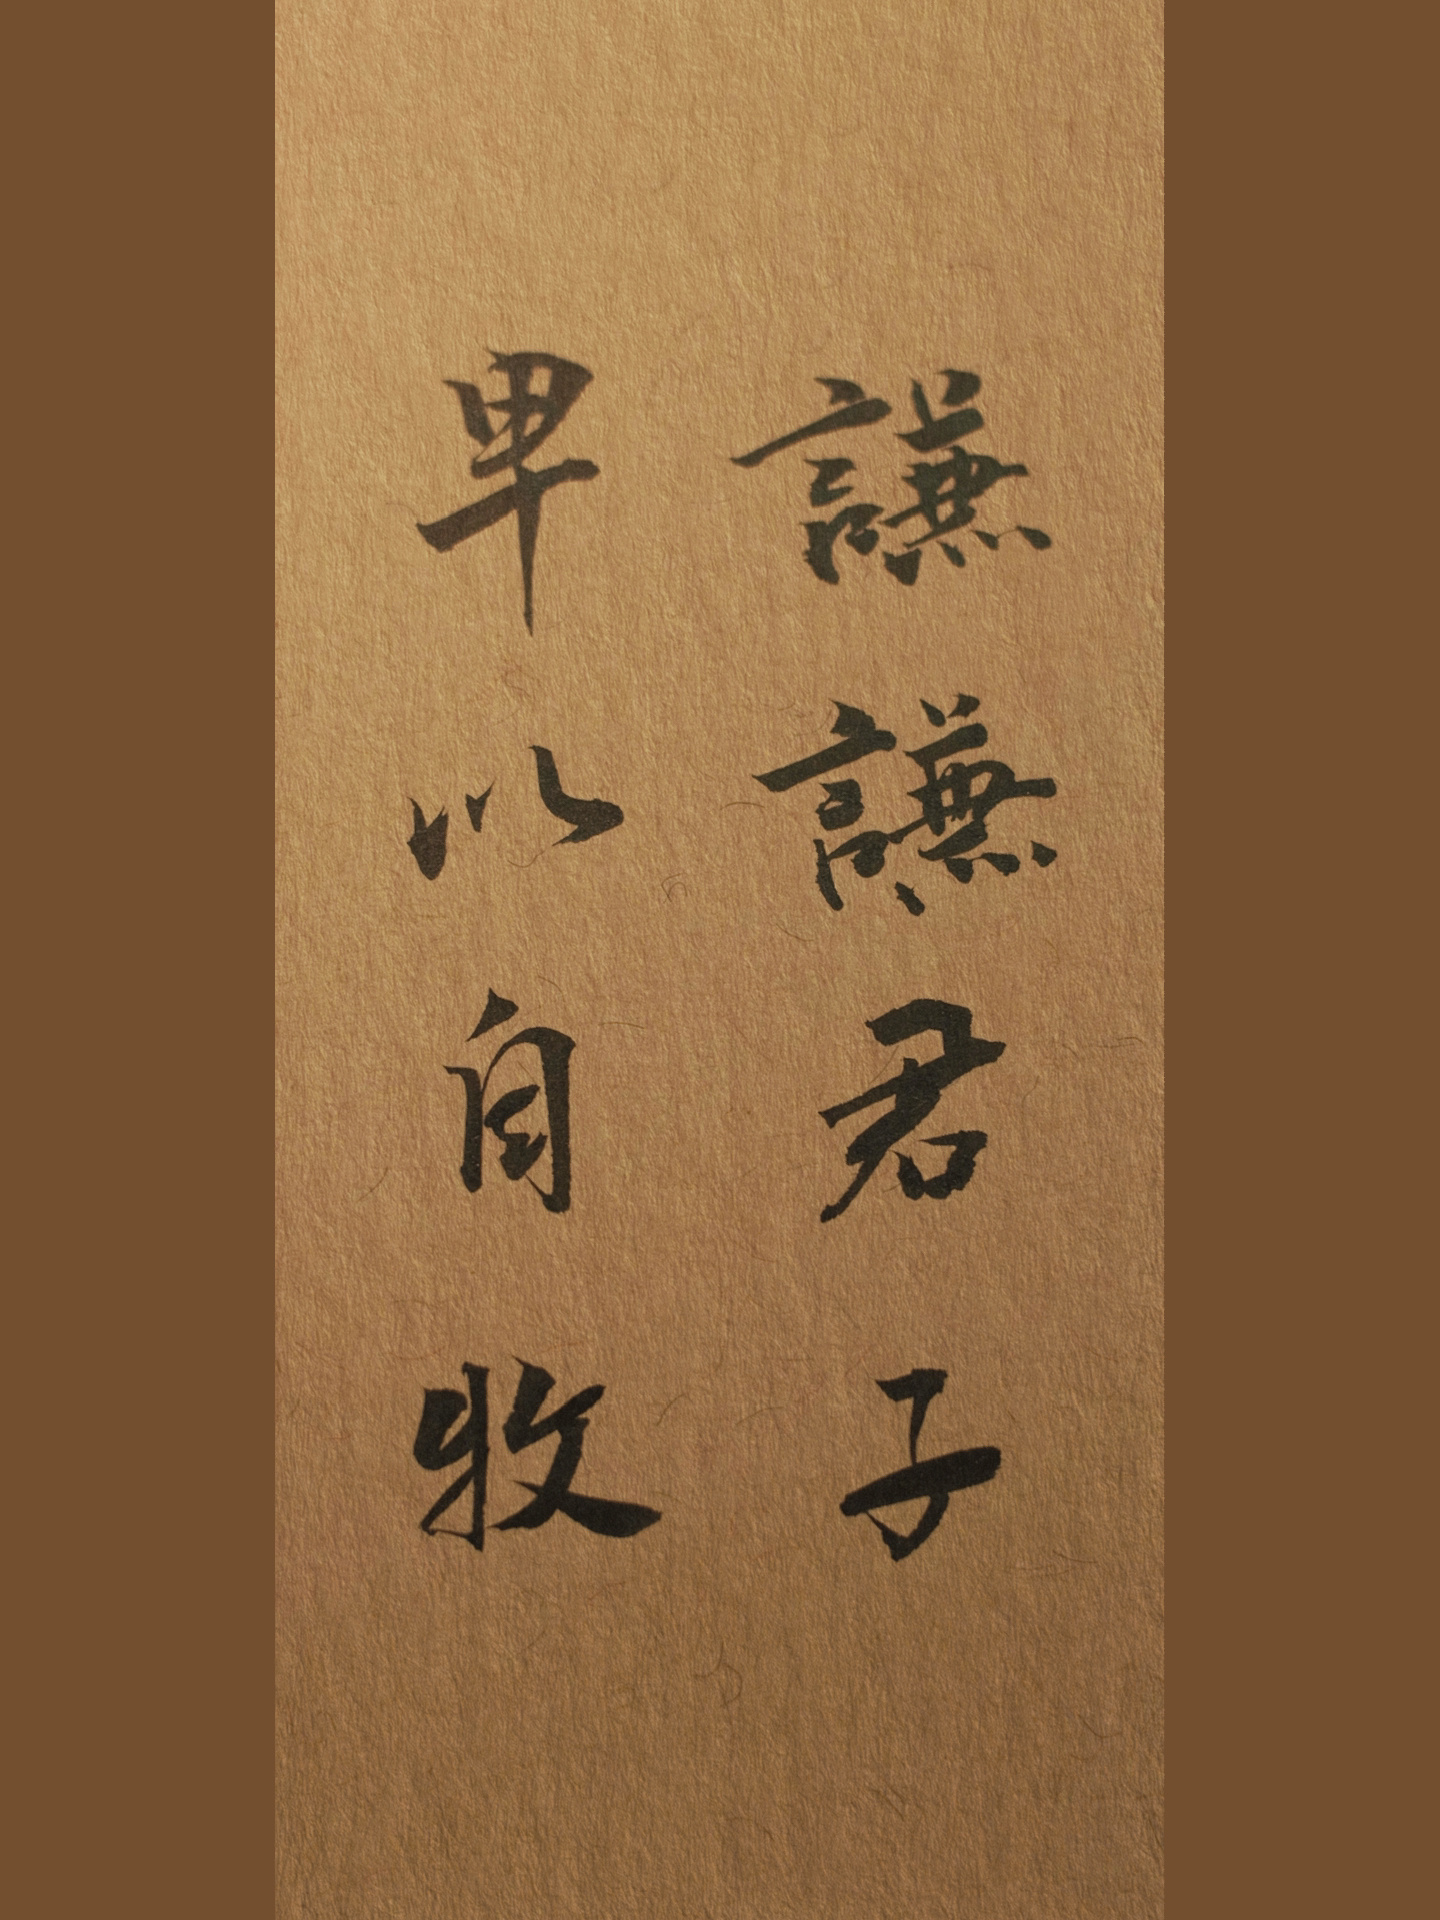 謙謙君子
卑以自牧